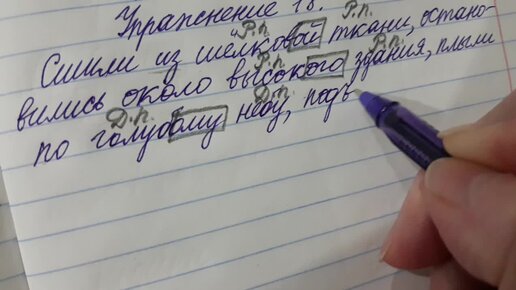 Упражнение 18.
Р.п. Р.п.
Сшили из шелковой ткани, остано-
Р.п. Р.п.
вились около высокого здания, плыли
Д.п. Д.п.
по голубому небу, подъ